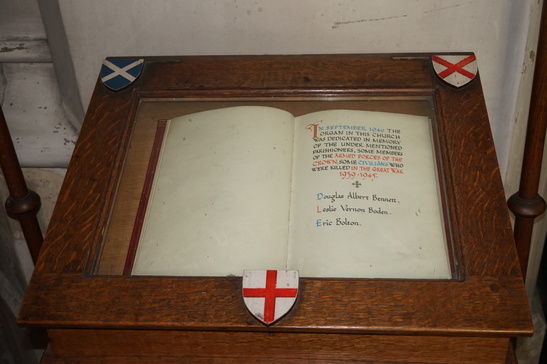 IN SEPTEMBER, 1949 THE
ORGAN IN THIS CHURCH
WAS DEDICATED IN MEMORY
OF THE UNDER MENTIONED
PARISHIONERS, SOME MEMBERS
OF THE ARMED FORCES OF THE
CROWN, SOME CIVILIANS WHO
WERE KILLED IN THE GREAT WAR
1939-1945.
Douglas Albert Bennett.
Leslie Vernon Boden.
Eric Bolton.